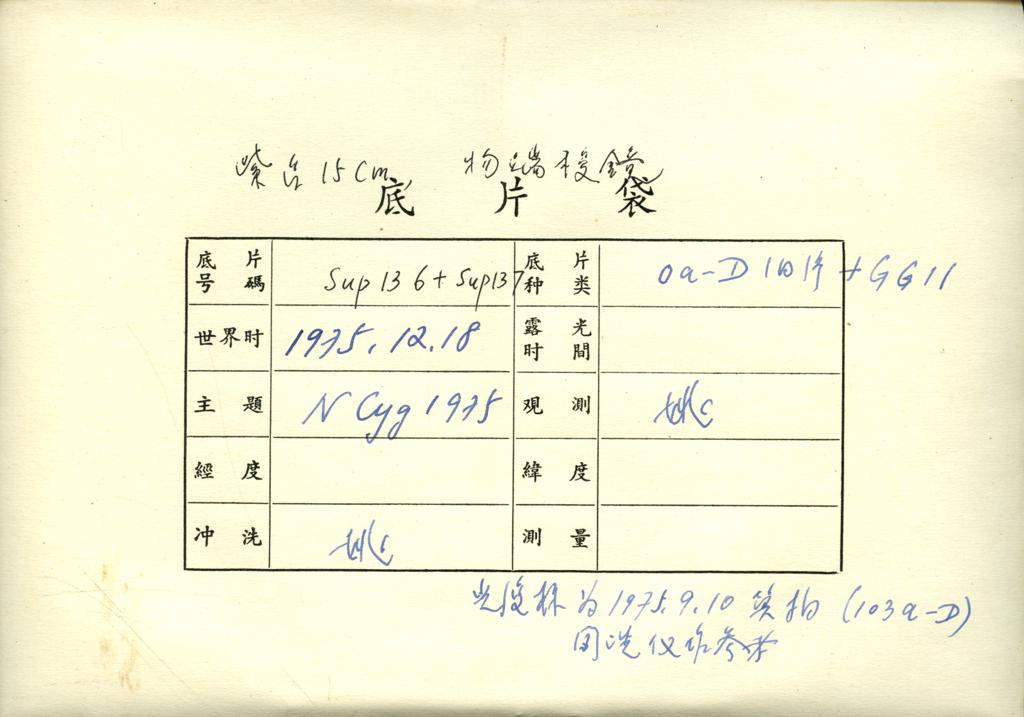 紫台15cm 物端棱鏡
底片袋
底片号碼 Sup136+Sup137 底片种类 0a-D 旧片+GG11
世界时 1975.12.18 露光时間
主題 N Cyg 1975 观測 姚
經度 緯度
冲洗 姚 測量
为1975.9.10 拍 (103a-D)
因 仅作参考